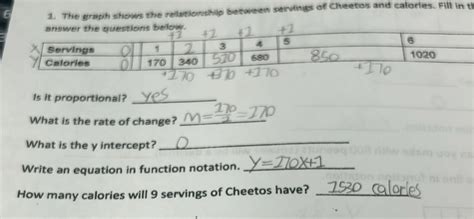 2. The graph shows the relationship between servings of Cheetos and calories. Fill in th
answer the questions below.
+1 +1 +1 +1
X Servings 0 1 2 3 4 5 6
Y Calories 0 170 340 510 680 850 1020
+170 +170 +170 +170
Is it proportional? yes
What is the rate of change? M=170/1=170
What is the y intercept? 0
Write an equation in function notation. Y=170x+1
How many calories will 9 servings of Cheetos have? 1530 calories